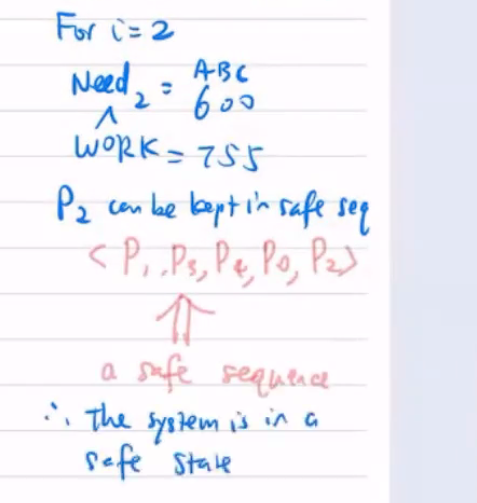 For i = 2
Need₂ = ABC
600
^
WORK = 755
P₂ can be kept in safe seq
< P₁, P₃, P₄, P₀, P₂ >
⇑
a safe sequence
∴ The system is in a
safe state